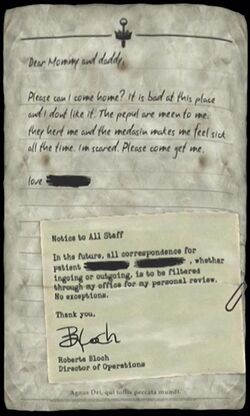 Dear Mommy and daddy,
Please can I come home? It is bad at this place
and I dont like it. The pepul are meen to me.
they hert me and the medasin makes me feel sick
all the time. Im scared. Please come get me.
love
Notice to All Staff
In the future, all correspondence for
patient , whether
ingoing or outgoing, is to be filtered
through my office for my personal review.
No exceptions.
Thank you,
BLoch
Roberta Bloch
Director of Operations
Agnus Dei, qui tollis peccata mundi.